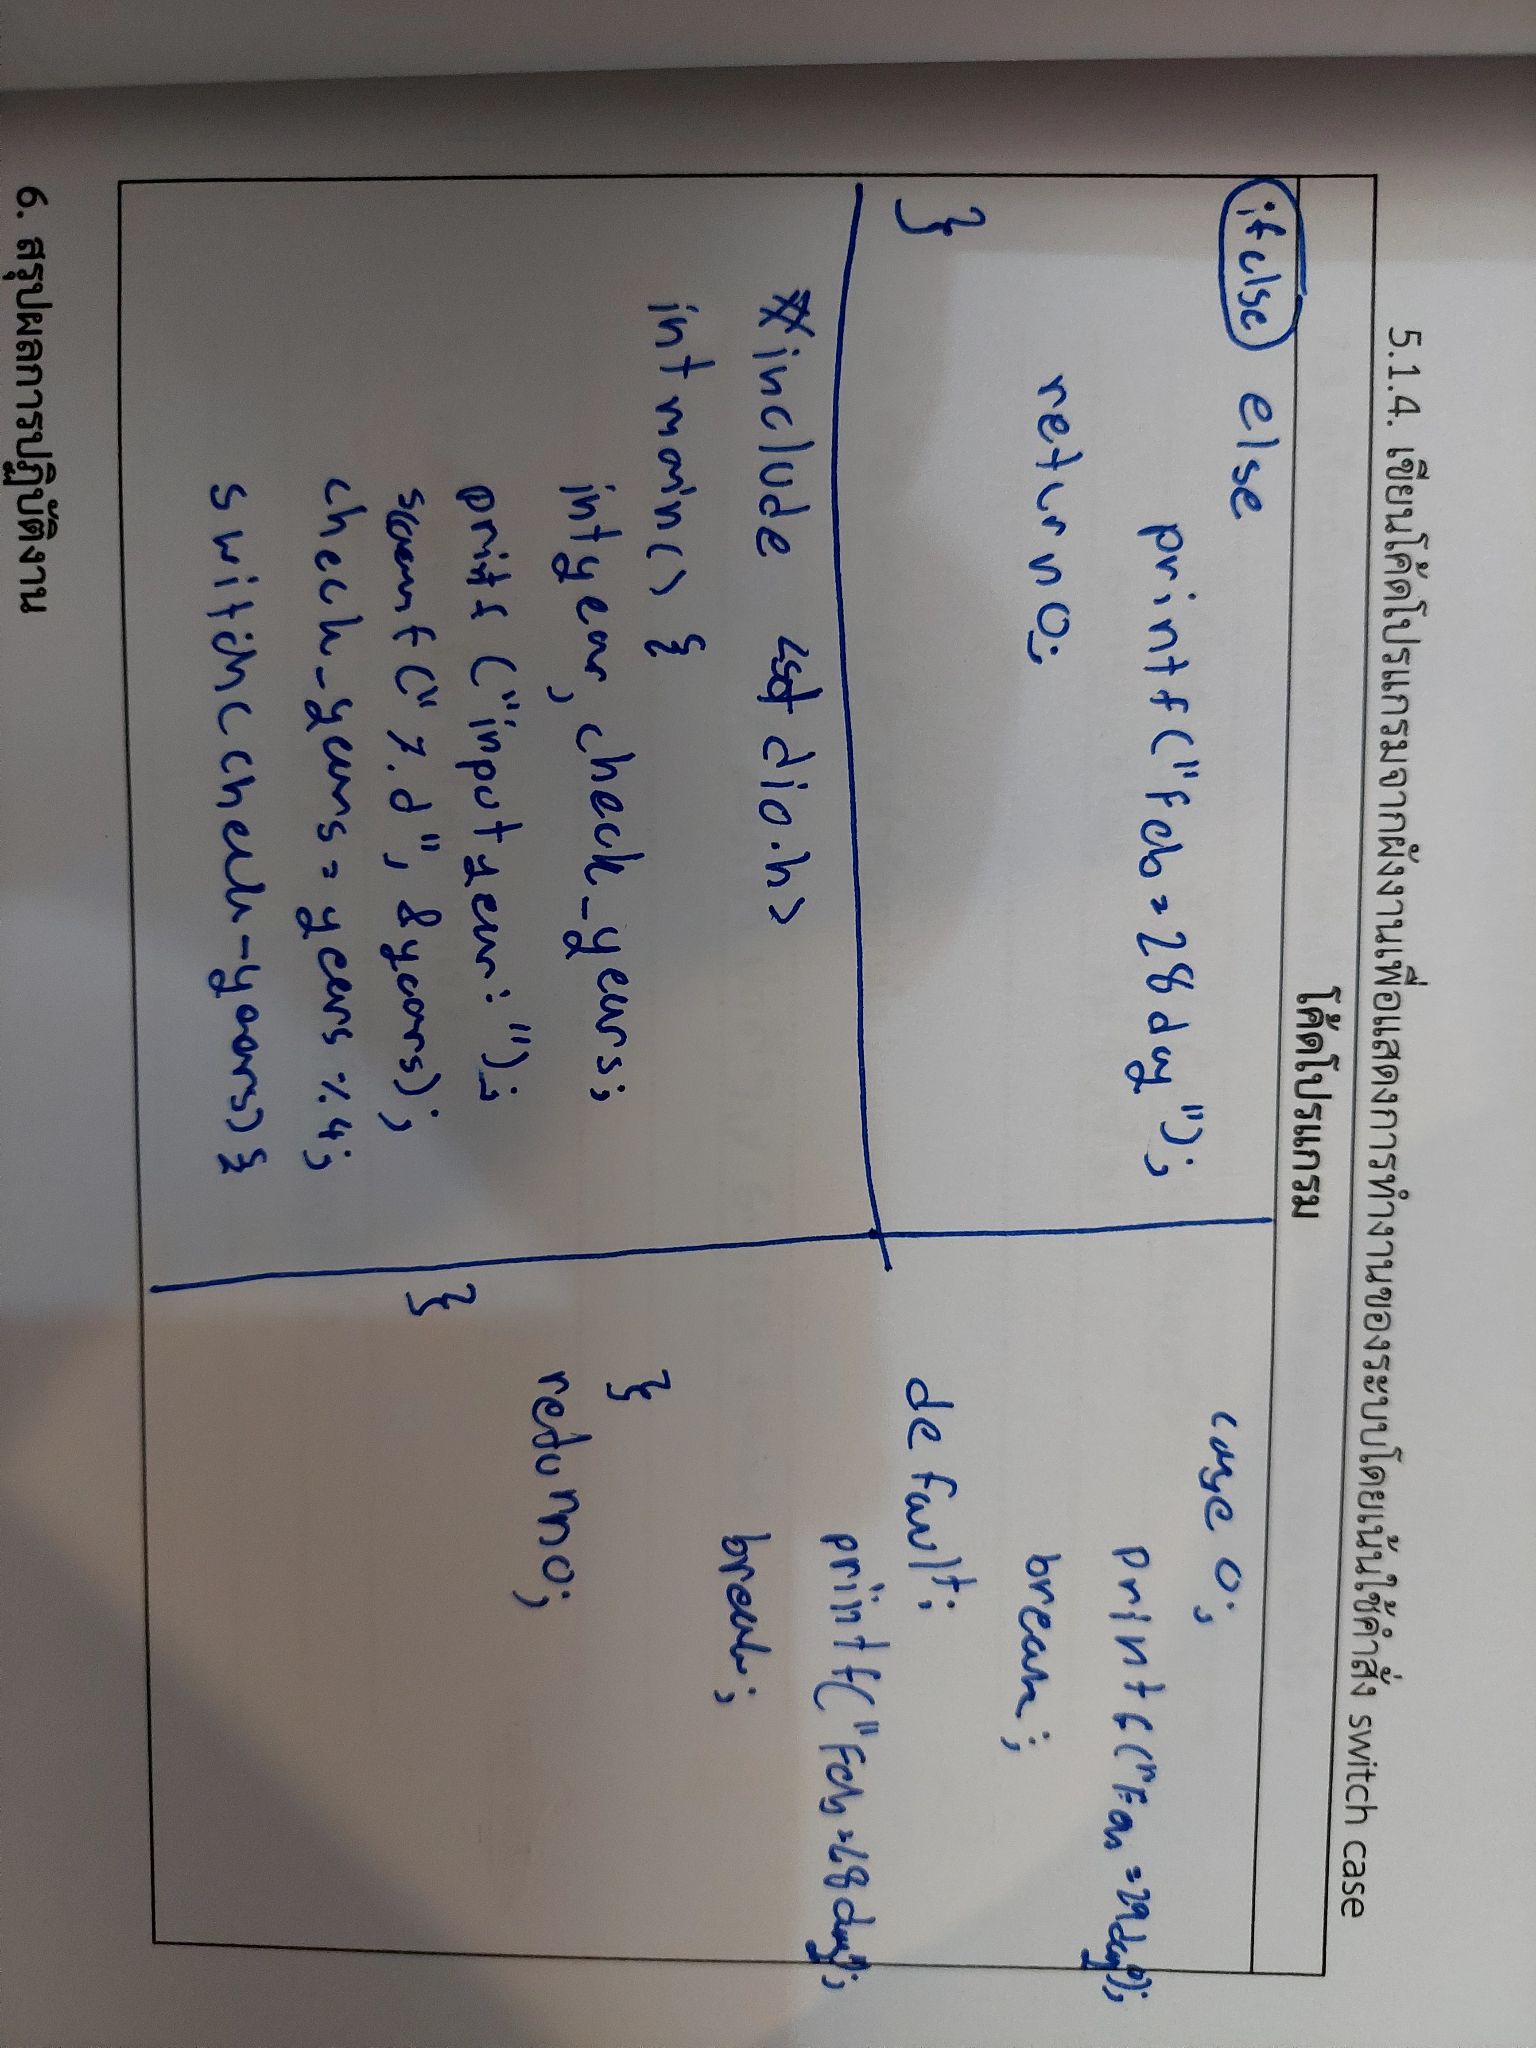 5.1.4. เขียนโค้ดโปรแกรมจากผังงานเพื่อแสดงการทำงานของระบบโดยเน้นใช้คำสั่ง switch case
โค้ดโปรแกรม
if else else
printf("Feb = 28 day");
return 0;
}
#include <stdio.h>
int main() {
int year, check_years;
printf ("input year: ");
scanf("%d", &years);
check_years = years % 4;
switch(check_years) {
case 0;
printf("Feb = 29 day");
break;
default;
printf("Feb = 28 day");
break;
}
return 0;
}
6. สรุปผลการปฏิบัติงาน